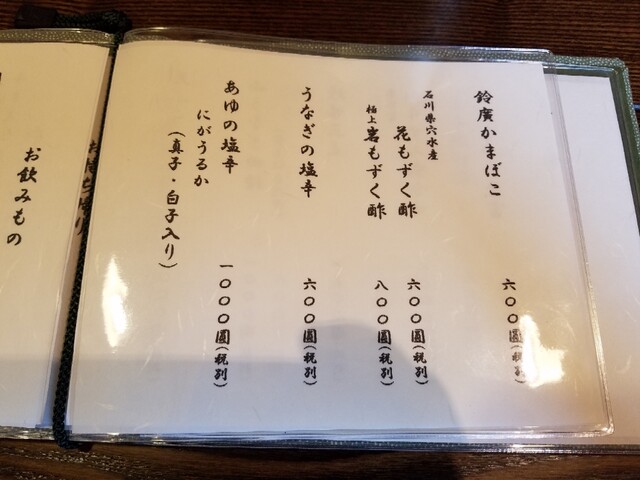 鈴廣かまぼこ
六〇〇圓(税別)
石川県穴水産
花もずく酢
六〇〇圓(税別)
極上 岩もずく酢
八〇〇圓(税別)
うなぎの塩辛
六〇〇圓(税別)
あゆの塩辛
一〇〇〇圓(税別)
にがうるか
(真子・白子入り)
お飲みもの